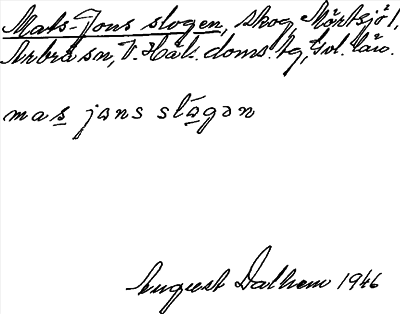 Mats-Jons slogen, skog, Mårtsjö 1,
Arbrå sn, V. Häls. doms. tg, Gvl. län.
mas jons slɑ́gən
August Dalhem 1946